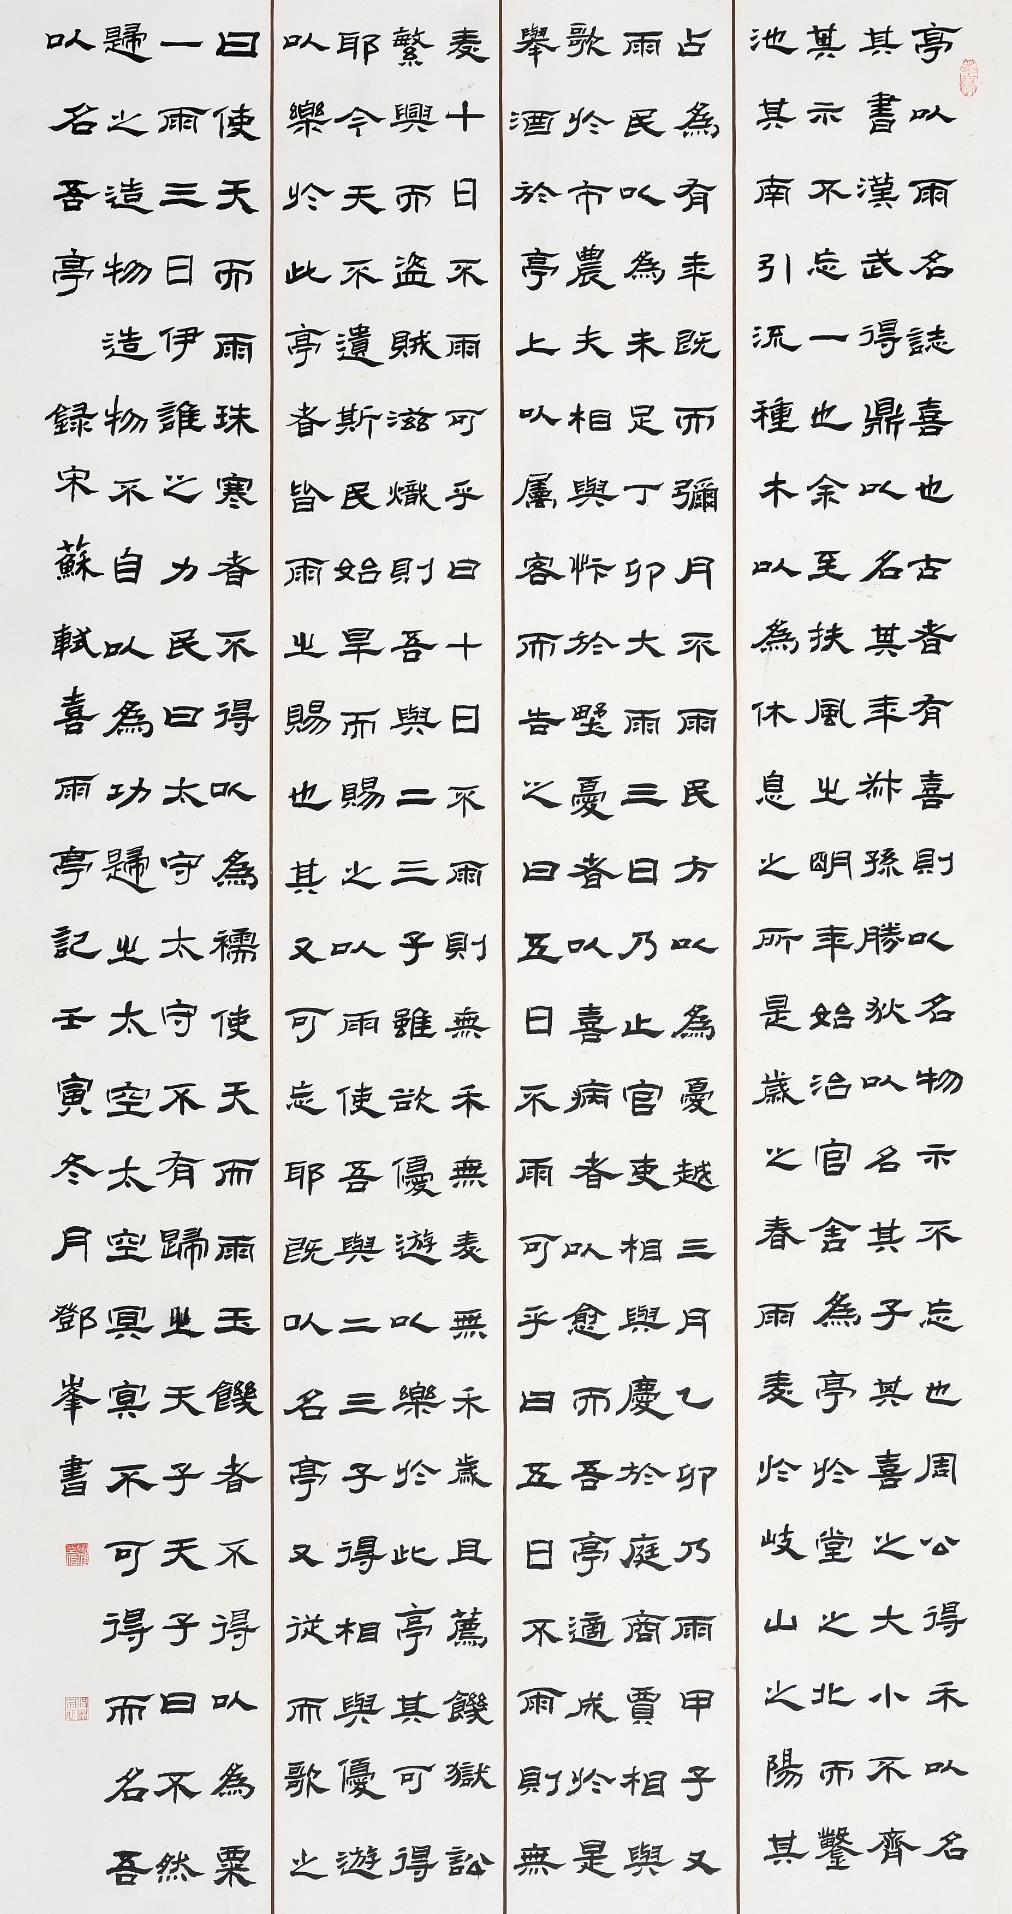 亭以雨名誌喜也古者有喜則以名物示不忘也周公得禾以名
其書漢武得鼎以名其年叔孫勝狄以名其子其喜之大小不齊
其示不忘一也余至扶風之明年始治官舍為亭於堂之北而鑿
池其南引流種木以為休息之所是歲之春雨麥於岐山之陽其
占為有年既而彌月不雨民方以為憂越三月乙卯乃雨甲子又
雨民以為未足丁卯大雨三日乃止官吏相與慶於庭商賈相與
歌於市農夫相與忭於野憂者以喜病者以愈而吾亭適成於是
舉酒於亭上以屬客而告之曰五日不雨可乎曰五日不雨則無
麥十日不雨可乎曰十日不雨則無禾無麥無禾歲且薦饑獄訟
繁興而盜賊滋熾則吾與二三子雖欲優遊以樂於此亭其可得
耶今天不遺斯民始旱而賜之以雨使吾與二三子得相與優遊
以樂於此亭者皆雨之賜也其又可忘耶既以名亭又從而歌之
曰使天而雨珠寒者不得以為襦使天而雨玉饑者不得以為粟
一雨三日伊誰之力民曰太守太守不有歸之天子天子曰不然
歸之造物造物不自以為功歸之太空太空冥冥不可得而名吾
以名吾亭 錄宋蘇軾喜雨亭記壬寅冬月鄧峯書